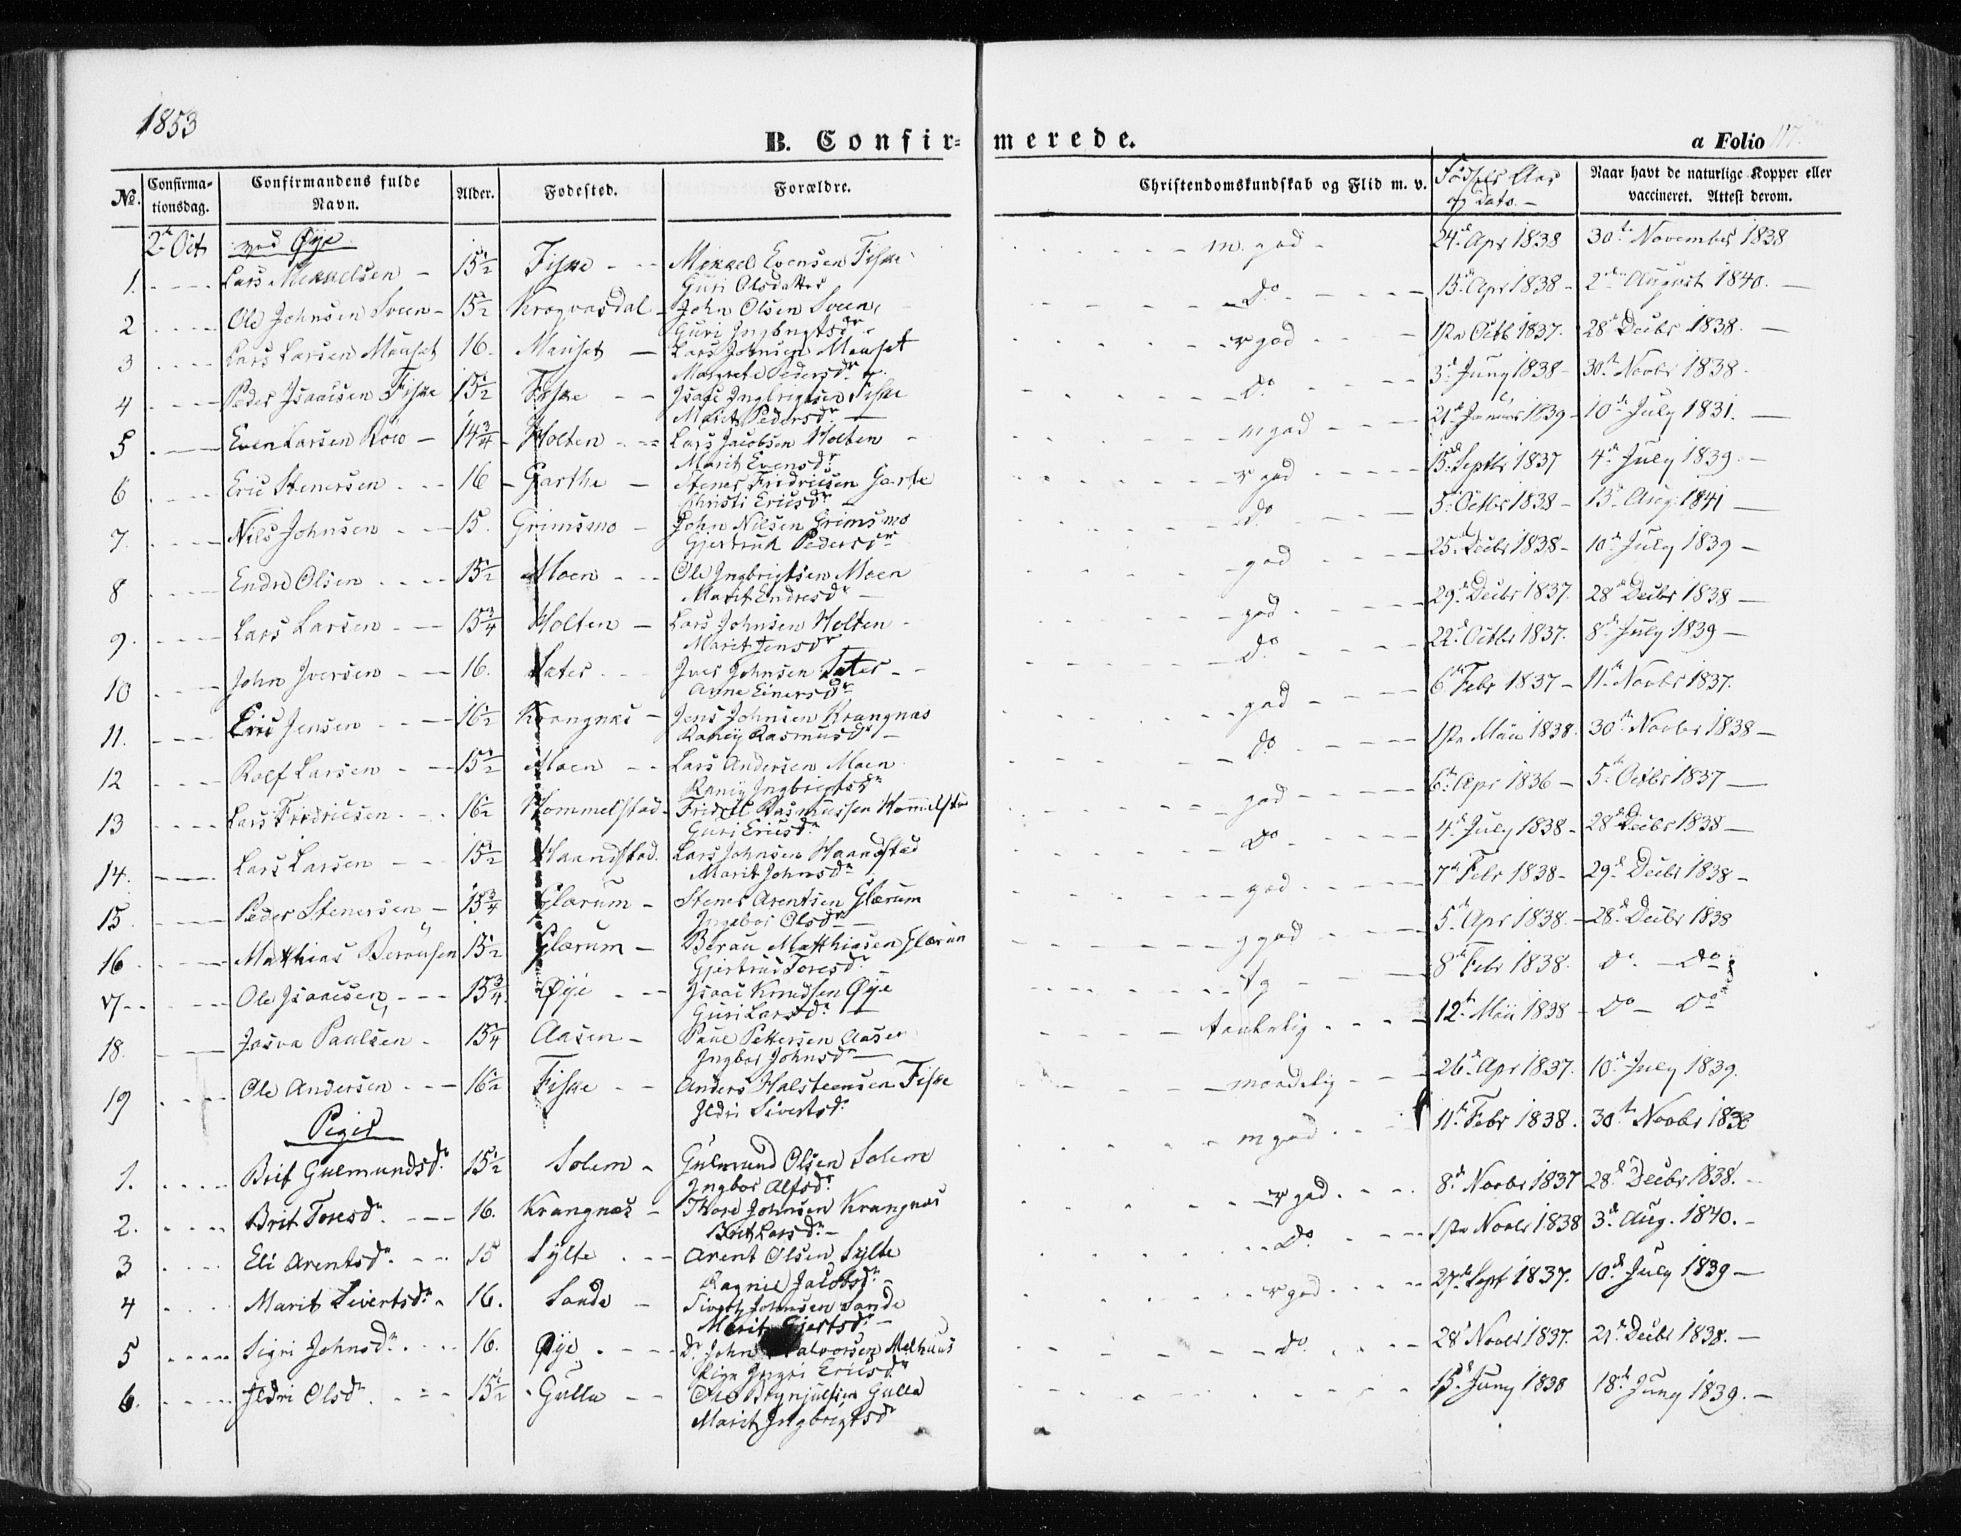 1853
B. Confir=
merede.
a Folio 117.
№ Confirmationsdag. Confirmandens fulde Navn. Alder. Fødested. Forældre. Christendomskundskab og Flid m. v. Fødsels Aar og Dato. Naar havt de naturlige Kopper eller vaccineret. Attest derom.
2 Oct ved Øye
1. Lars Mikkelsen 15½ Fiske Mikkel Evensen Fiske m. god 24 Apr 1838 30 November 1838
Guri Olsdatter
2 Ole Johnsen Sveen 15½ Krogvasdal John Olsen Sveen Do 15 Apr 1838 2 August 1840.
Guri Ingbrigtsdr
3 Lars Larsen Mauset 16. Mauset Lars Johnsen Mauset god 1ste Octb 1837. 28 Decbr 1838.
Margrete Pedersdr
4 Peder Isaacsen Fiske 15½ Fiske Isaac Ingbrigtsen Fiske Do 3 Juny 1838 30 Novbr 1838
Marit Pedersdr
5 Even Larsen 14¾ Holten Lars Jacobsen Holten m god 21 Januar 1839 10 July 1831.
Marit Evensdr
6 Eric Stenersen 16 Garthe Stener Fridricsen Garte god 15 Septbr 1837 4 July 1839.
Christi Ericsdr
7. Nils Johnsen 15. Grimsmo John Nilsen Grimsmo Do 5 Octbr 1838 13 Aug. 1841
Gjertrud Pedersdr
8 Endre Olsen 15½ Moen Ole Ingbrigtsen Moen god 25 Decbr 1838 10 July 1839
Marit Endresdr
9. Lars Larsen 15¾ Holten Lars Johnsen Holten god 29 Decbr 1837. 28 Decbr 1838
Marit Jensdr
10 John Iversen 16. Sæter Iver Johnsen Sæter Do 22 Octbr 1837. 8 July 1839
Anne Einersdr
11. Eric Jensen 16½ Krangnæs Jens Johnsen Krangnæs god 6 Febr 1837 11 Novbr 1837.
Raney Rasmusdr
12 Rolf Larsen 15½ Moen Lars Andersen Moen Do 1ste Mai 1838. 30 Novbr 1838
Raney Ingbrigtsdr
13 Lars Fridricsen 16½ Hommelstad Fridric Rasmussen Hommelstad god 6 Apr 1836 5 Octbr 1837
Guri Ericsdr
14. Lars Larsen 15½ Haandstad. Lars Johnsen Haandstad Do 4 July 1838 28 Decbr 1838
Marit Johnsdr
15. Peder Stenersen 15¾ Glærum Stener Arentsen Glærum god 7 Febr 1838 29 Decbr 1838
Ingebor Olsdr
16 Matthias 15½ Glærum Matthiasen Glærum g god 5 Apr 1838. 28 Decbr 1838
Gjertrud Toresdr
17 Ole Isaacsen 15¾ Øye Isaac Knudsen Øye tg 8 Febr 1838. Do Do
Guri Larsdr
18. Paulsen 15¼ Aasen Paul Pettersen Aasen 12 Mai 1838 Do Do
Ingbor Johnsdr
19 Ole Andersen 16½ Fiske Anders Halsteensen Fiske maadelig 26 Apr 1837. 10 July 1839.
Ildri Sivertsdr
Piger
1. Brit Gulmundsdr 15½ Solem Gulmund Olsen Solem m god 11 Febr 1838. 30 Novbr 1838
Ingbor Alfsdr
2. Brit Toresdr. 16. Krangnæs Thore Johnsen Krangnæs god 8 Novbr 1837 28 Decbr 1838.
Brit Larsdr
3 Eli Arentsdr 15 Sylte Arent Olsen Sylte Do 1ste Novbr 1838 3 Aug. 1840.
Ragnil Jacobsdr
4 Marit Sivertsdr 16. Sande Sivert Johnsen Sande god 27 Sept 1837. 10 July 1839
Marit Gjertsdr
5 Sigri Johnsdr 16. Øye John Halvorsen Melhuus do 28 Novbr 1837. 21 Decbr 1838.
Pige Ingri Ericsdr
6. Ildri Olsdr 15½ Gulla Ole Brynjulfsen Gulla 15 Juny 1838 18 Juny 1839.
Marit Ingbrigtsdr